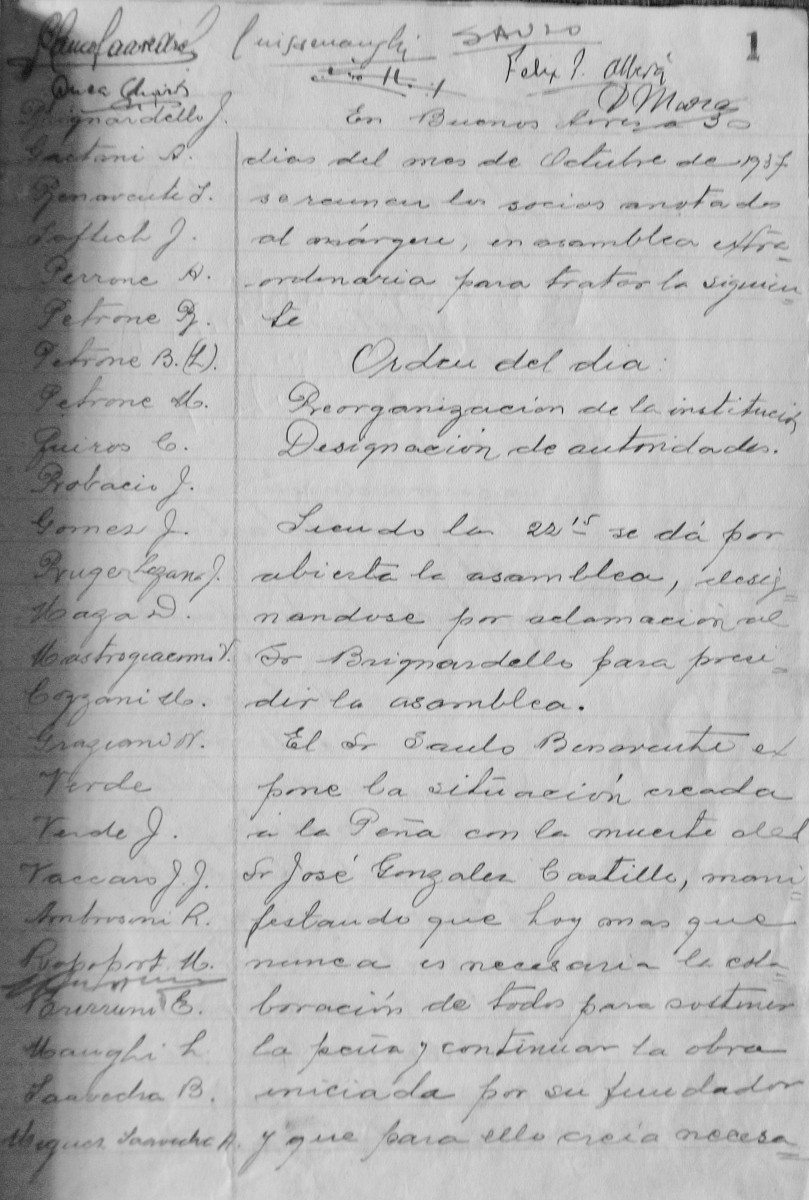 1
SAULO
Felix J.
Brignardello J.
Gaetani A.
Benavente S.
Perrone A.
Petrone
Petrone B. (L).
Petrone M.
Quiros C.
Probacio J.
Gomez J.
Maga D.
Mastrogiacomo V.
Cozzani M.
Graziani N.
Verde
Verde J.
Vaccaro J. J.
Ambrosoni R.
Rapoport M.
Maughi L
Saavedra B.
Saavedra A.
En Buenos Aires a 30
dias del mes de Octubre de 1937
se reunen los socios anotados
al márgen, en asamblea extra=
ordinaria para tratar la siguien=
te
Orden del dia:
Reorganización de la institución
Designación de autoridades.
Siendo las 22 15 se dá por
abierta la asamblea, desig=
nandose por aclamación al
Sr Brignardello para presi=
dir la asamblea.
El Sr Saulo Benavente ex
pone la situación creada
a la Peña con la muerte del
Sr José Gonzalez Castillo, mani=
festando que hoy mas que
nunca es necesaria la cola=
boración de todos para sostener
la peña y continuar la obra
iniciada por su fundador
y que para ello creía necesa=